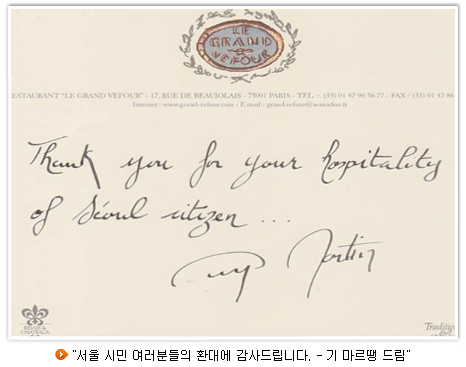 LE
GRAND
VEFOUR
RESTAURANT "LE GRAND VEFOUR" - 17, RUE DE BEAUJOLAIS - 75001 PARIS - TEL. : (33) 01 42 96 56 27 - FAX : (33) 01 42 86
Internet : www.grand-vefour.com - E.mail : grand.vefour@wanadoo.fr
Thank you for your hospitality
of Séoul citizen ...
Guy Martin
RELAIS &
CHATEAUX
"서울 시민 여러분들의 환대에 감사드립니다. - 기 마르땡 드림"